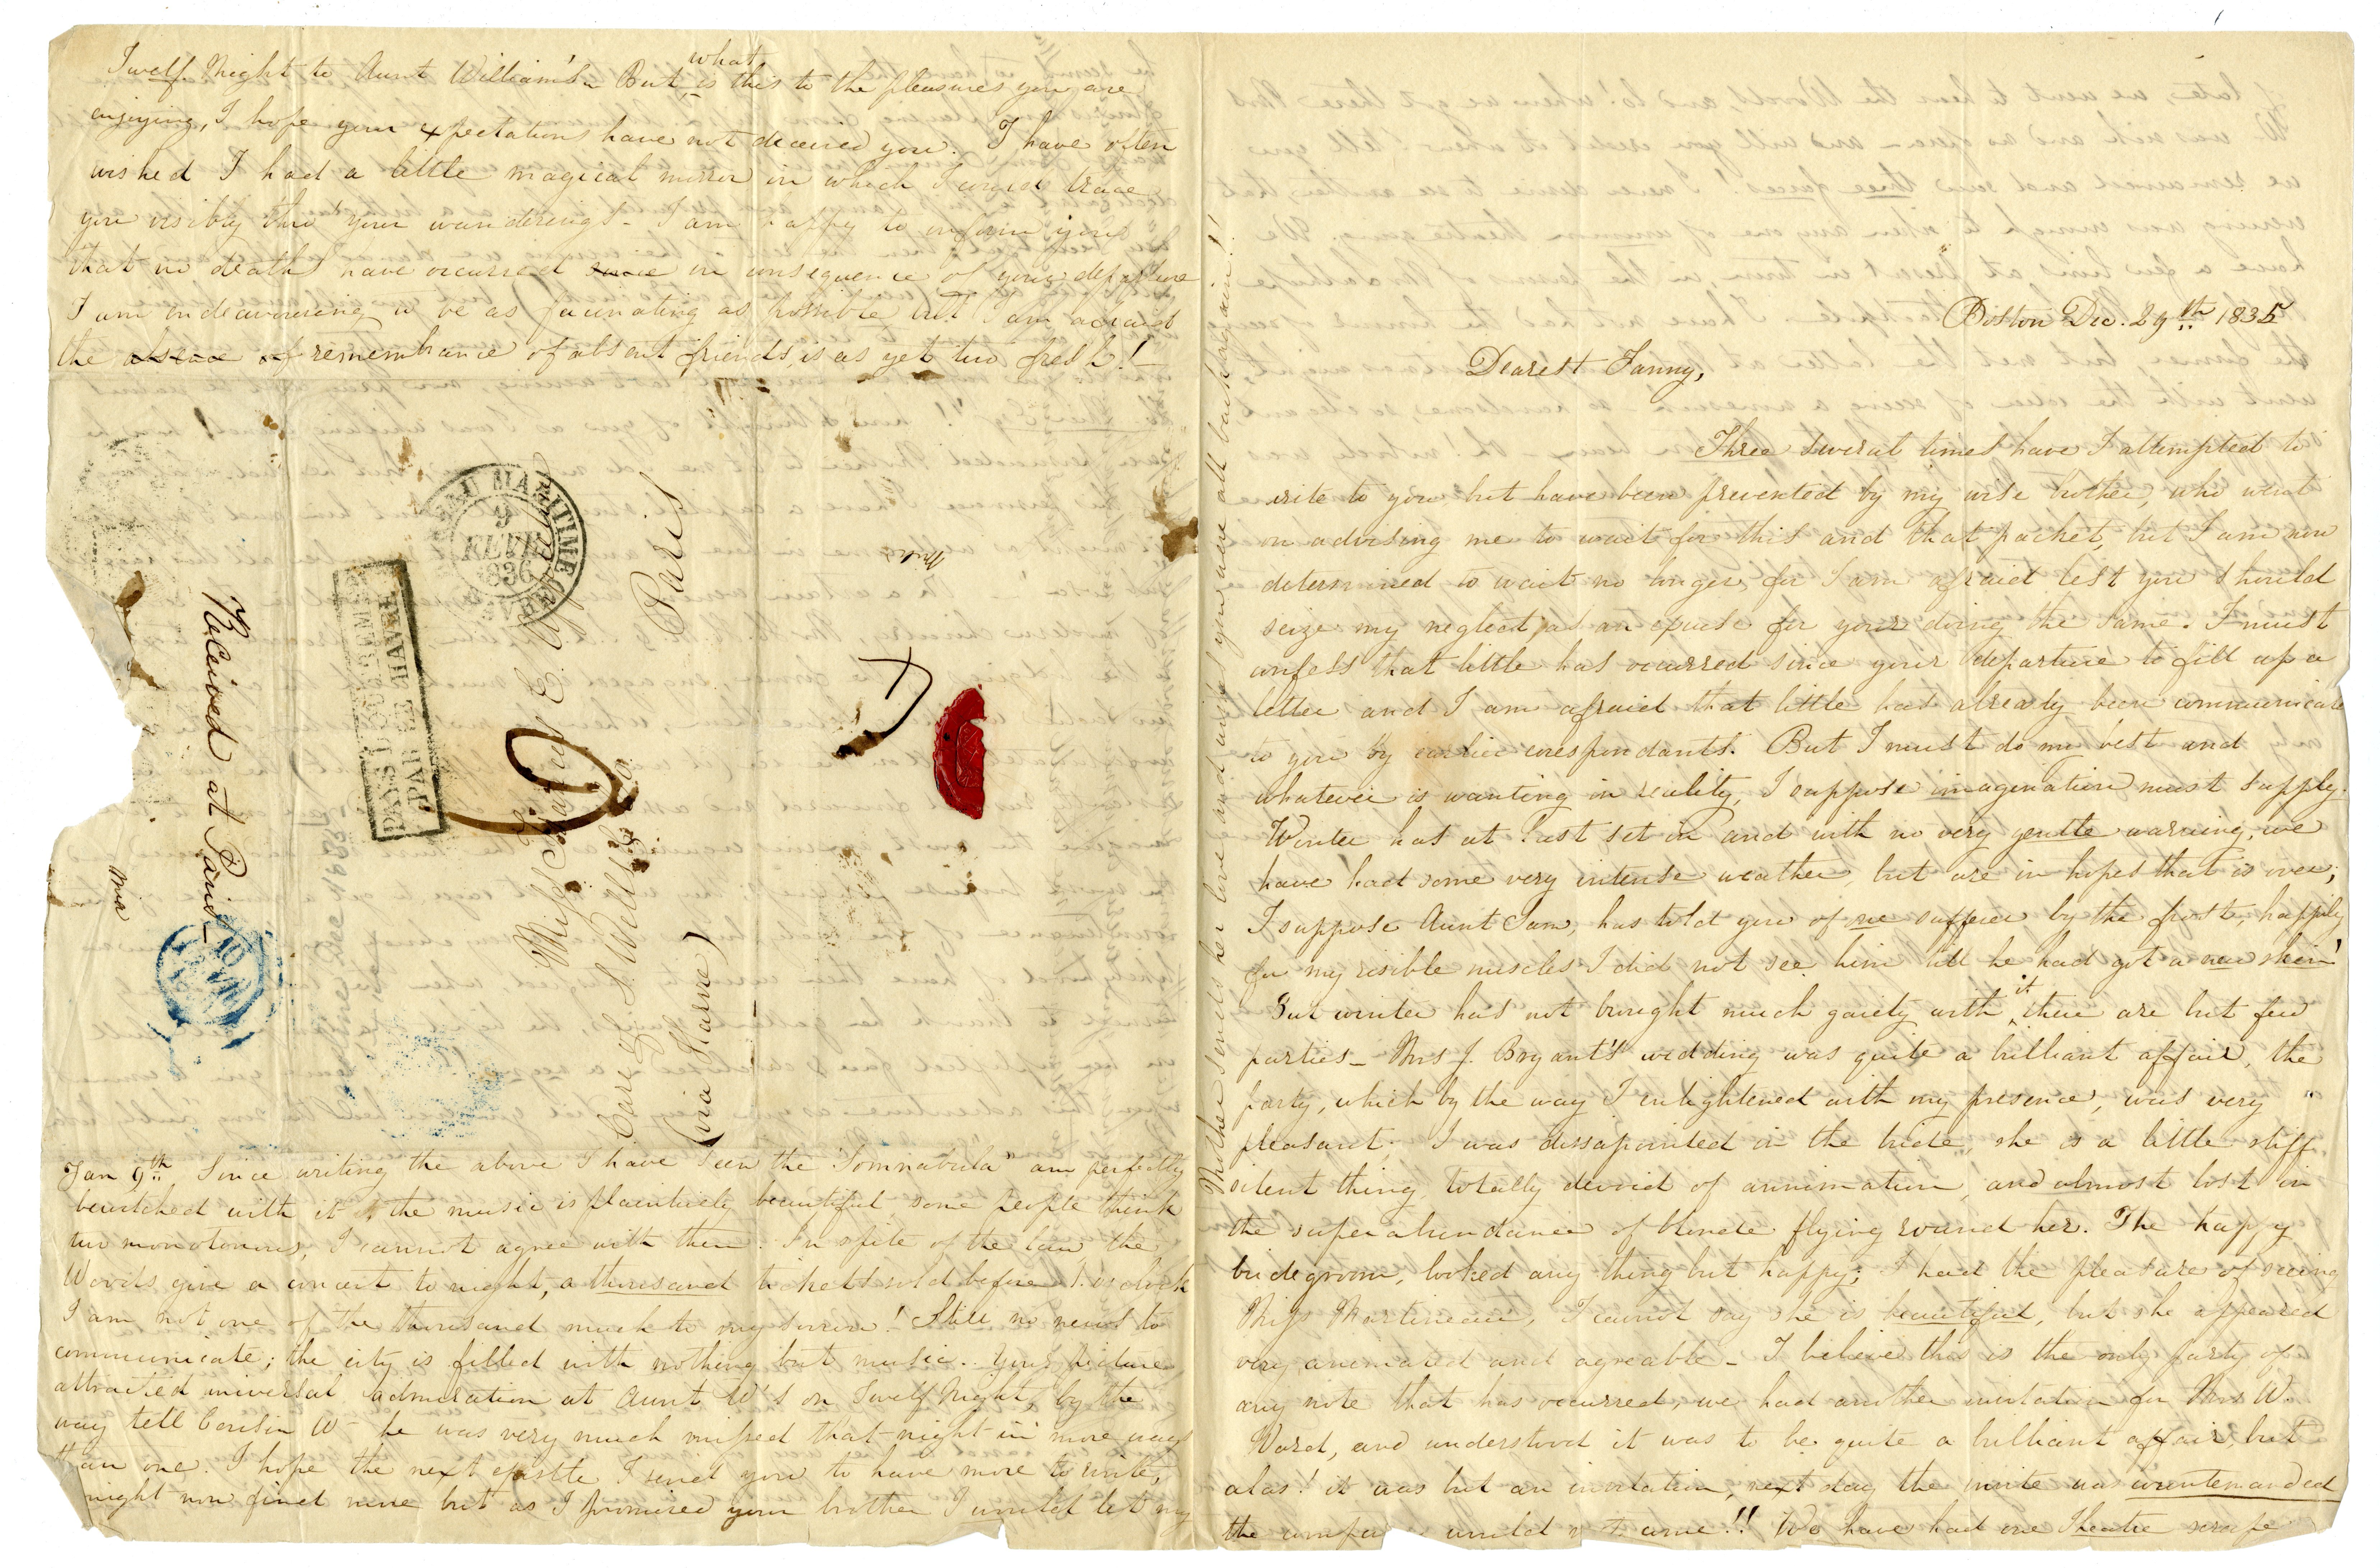 Boston Dec. 29th 1835
Dearest Fanny,
Three several times have I attempted to
write to you but have been prevented by my wise brother, who went
on advising me to wait for this and that packet, but I am now
determined to wait no longer, for I am afraid lest you should
seize my neglect as an excuse for your doing the same. I must
confess that little has occurred since your departure to fill up a
letter and I am afraid that little has already been communicated
to you by earlier correspondants. But I must do my best and
whatever is wanting in reality, I suppose imagination must supply.
Winter has at last set in and with no very gentle warning, we
have had some very intense weather, but are in hopes that is over;
I suppose Aunt Sam, has told you of one sufferer by the frost, happily
for my risible muscles I did not see him till he had got a new skin!
But winter has not brought much gaiety with it, there are but few
parties_ Mrs J. Bryant's wedding was quite a brilliant affair, the
party, which by the way I enlightened with my presence, was very
pleasant; I was dissapointed in the bride, she is a little stiff
silent thing, totally devoid of annimation, and almost lost in
the superabundance of blonde flying round her. The happy
bridegroom, looked any thing but happy; I had the pleasure of seeing
Miss Martineau, I cannot say she is beautiful, but she appeared
very animated and agreable_ I believe this is the only party of
any note that has occurred, we had another invitation for Mrs W.
Ward, and understood it was to be quite a brilliant affair, but
alas! it was but an invitation, next day the invite was countermanded
the would not come!! We have had one Theatre scrape
Mother sends her love and wishes you were all back again!!
Twelf Night to Aunt William's_ But what is this to the pleasures you are
enjoying, I hope your expectations have not deceived you. I have often
wished I had a little magical mirror in which I might trace
you visibly thro' your wanderings_ I am happy to inform you
that no deaths have occurred since in consequence of your departure
I am endeavouring to be as facinating as possible but I am afraid
the absence of remembrance of absent friends, is as yet too fresh!_
Miss Fanny E. Appleton
Care of S. Welles
Paris
(via Havre)
BUREAU MARITIME
9
FEVR
1836
(HAVRE)
PAYS D'OUTREMER
PAR LE HAVRE
Received at Paris_
10
Jan 9th. Since writing the above I have seen the "Somnabula" am perfectly
bewitched with it, the music is plaintively beautiful, some people think
it monotonous, I cannot agree with them. In spite of the law the
Woods give a concert to night, a thousand tickets sold before 1. o'clock
I am not one of the thousand much to my sorrow! Still no news to
communicate; the city is filled with nothing but music. Your picture
attracted universal admiration at Aunt W's on Twelf Night, by the
way tell Cousin W_ he was very much missed that night in more ways
than one. I hope the next epistle I send you to have more to write,
might now find more but as I promised your brother I would let my